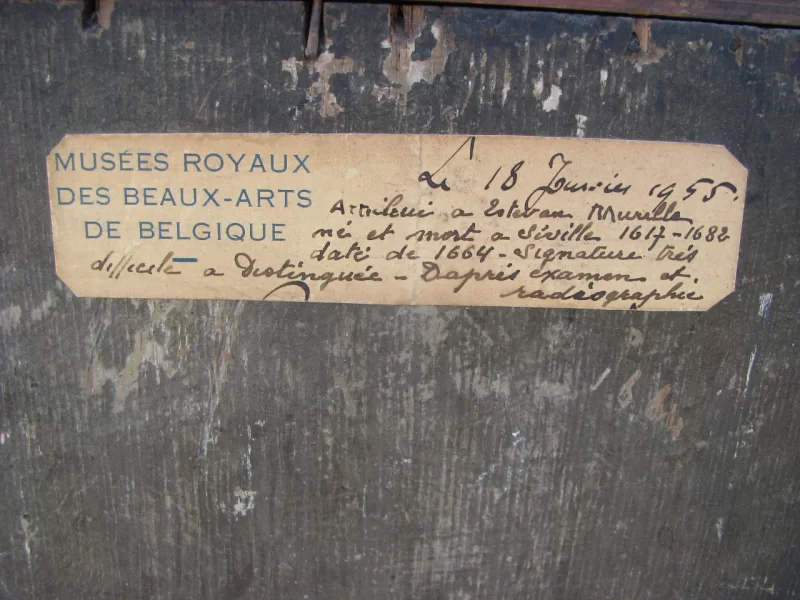 MUSÉES ROYAUX
DES BEAUX-ARTS
DE BELGIQUE
Le 18 Janvier 1955.
a Estevan Murillo
né et mort a Séville 1617-1682
daté de 1664 - Signature trés
difficile a Distinguée - Daprés examen et.
radiographie